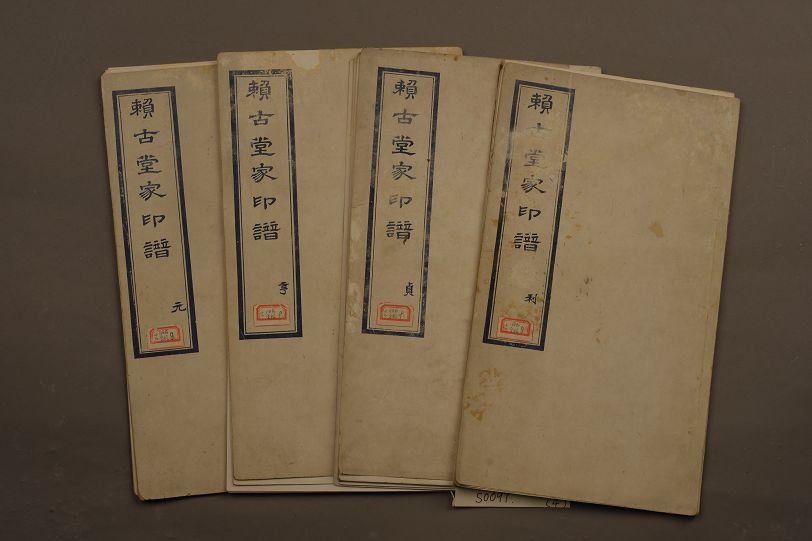 賴古堂家印譜
元
賴古堂家印譜
亨
賴古堂家印譜
貞
賴古堂家印譜
利
S0091.